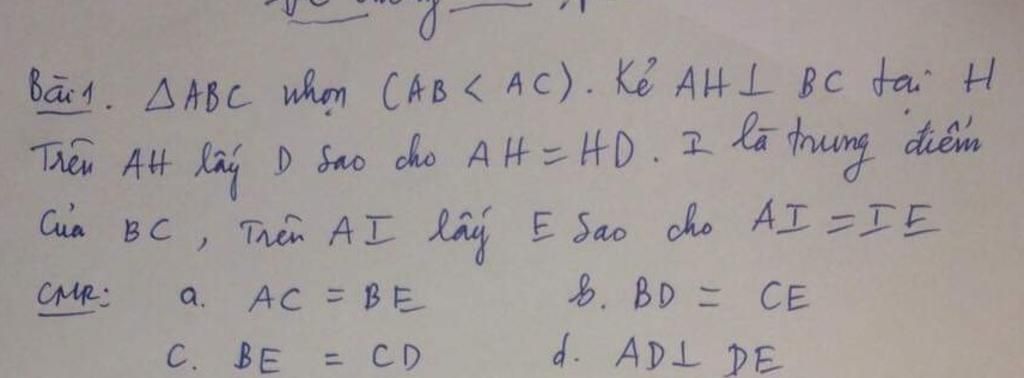 Bài 1. △ABC nhọn (AB < AC). Kẻ AH⊥ BC tại H
Trên AH lấy D sao cho AH = HD. I là trung điểm
của BC, Trên AI lấy E sao cho AI = IE
CMR: a. AC = BE b. BD = CE
C. BE = CD d. AD⊥ DE